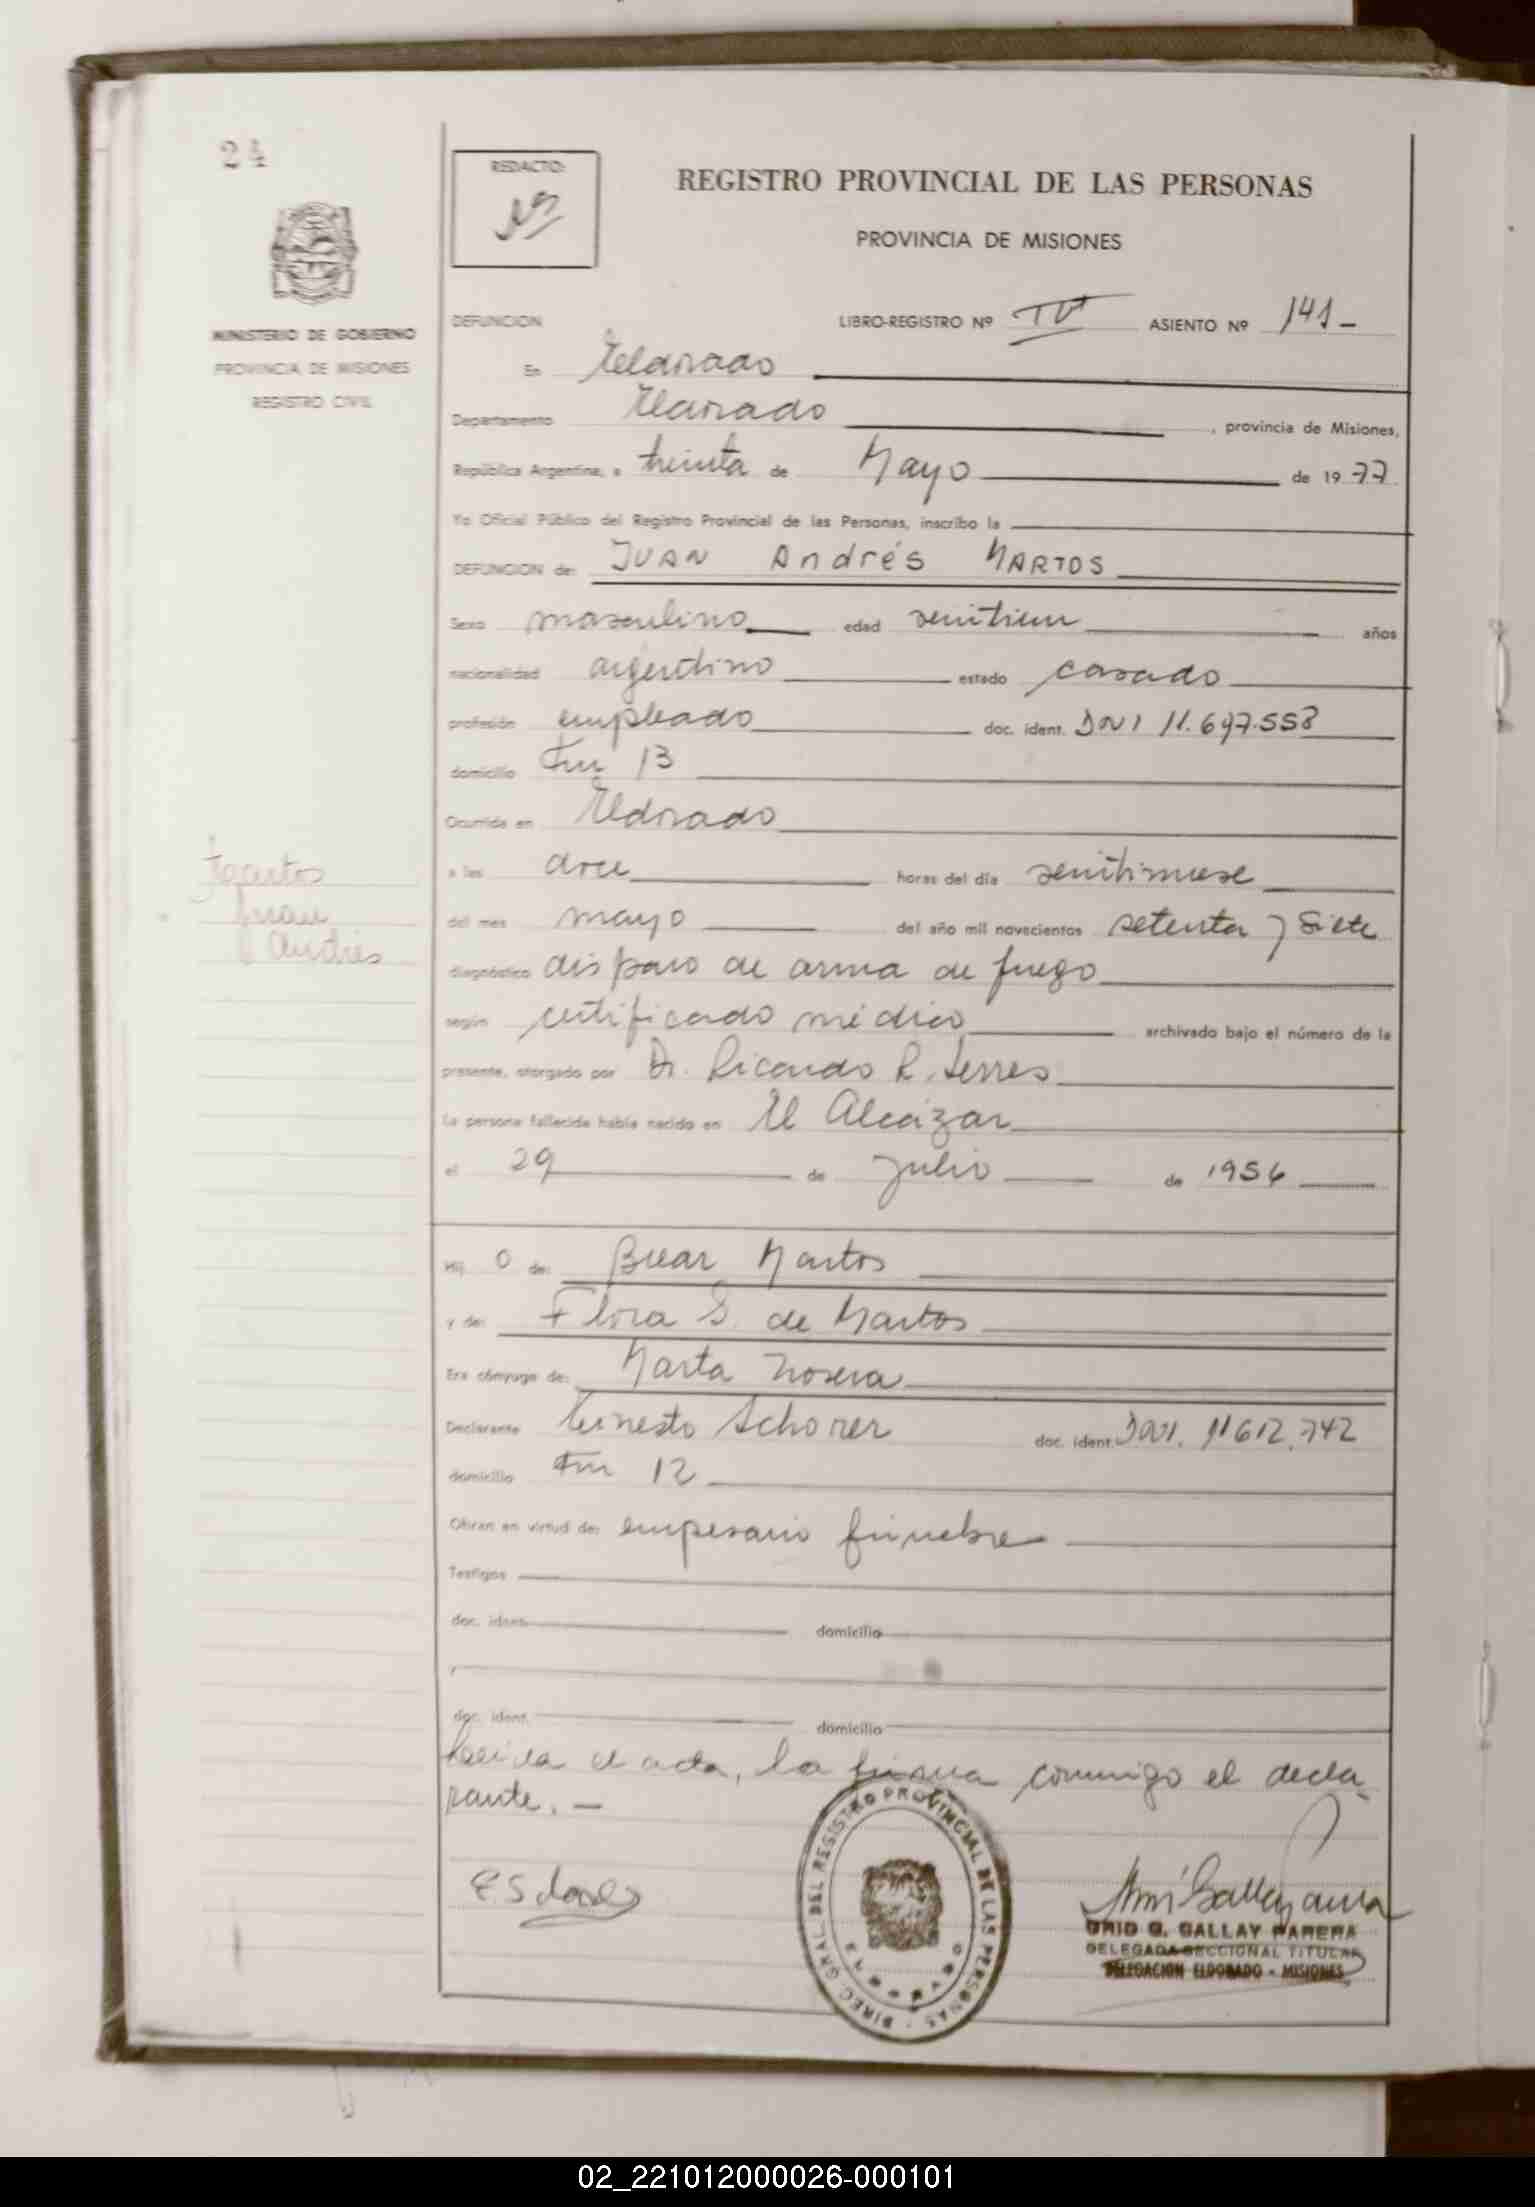 24
REDACTO:
REGISTRO PROVINCIAL DE LAS PERSONAS
PROVINCIA DE MISIONES
MINISTERIO DE GOBIERNO
PROVINCIA DE MISIONES
REGISTRO CIVIL
DEFUNCION LIBRO-REGISTRO Nº ASIENTO Nº 141-
En Eldorado
Departamento Eldorado , provincia de Misiones,
República Argentina, a treinta de Mayo de 1977
Yo Oficial Público del Registro Provincial de las Personas, inscribo la
DEFUNCION de: JUAN Andrés MARTOS
Sexo masculino edad años
nacionalidad argentino estado casado
profesión empleado doc. ident. DNI 11.697.558
domicilio Km 13
Ocurrida en Eldorado
a las doce horas del día veintinueve
del mes mayo del año mil novecientos setenta y siete
diagnóstico disparo de arma de fuego
según certificado médico archivado bajo el número de la
presente, otorgado por Dr. Ricardo R.
La persona fallecida había nacido en El Alcázar
el 29 de julio de 1956
Martos
Juan
Andrés
Hij o de: Martos
y de: Flora S. de Martos
Era cónyuge de: Marta
Declarante Ernesto Schorer doc. ident. DNI. 11612.742
domicilio Km 12
Obran en virtud de: empesario fúnebre
Testigos
doc. ident. domicilio
y
doc. ident. domicilio
el acta, la firma conmigo el decla
rante. —
DIREC. GRAL. DEL REGISTRO PROVINCIAL DE LAS PERSONAS
ELDORADO
G. GALLAY PARERA
DELEGADA SECCIONAL TITULAR
DELEGACION ELDORADO - MISIONES
02_221012000026-000101